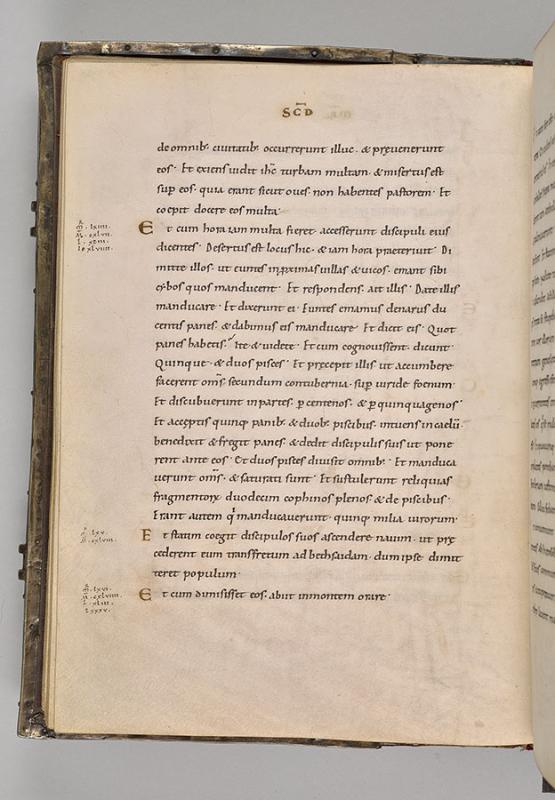 SCD
de omnib; ciuitatib; occurrerunt illuc. & pręuenerunt
eos. Et exiens uidit ihc turbam multam. & misertus est
sup eos. quia erant sicut oues. non habentes pastorem. Et
coepit docere eos multa.
Et cum hora iam multa fieret. accesserunt discipuli eius
dicentes. Desertus est locus hic. & iam hora praeteriuit. Di
mitte illos. ut euntes inproximas uillas & uicos. emant sibi
cybos quos manducent. Et respondens. ait illis. Date illis
manducare. Et dixerunt ei. Euntes emamus denarus du
centis panes. & dabimus eis manducare. Et dicit eis. Quot
panes habetis? Ite & uidete. Et cum cognouissent. dicunt.
Quinque. & duos pisces. Et precepit illis ut accumbere
facerent oms secundum contubernia. sup uiride foenum.
Et discubuerunt inpartes. p centenos. & p quinquagenos.
Et acceptis quinq; panib; & duob; piscibus. intuens in caelū.
benedixit & fregit panes. & dedit discipulis suis ut pone
rent ante eos. Et duos pisces diuisit omnib; Et manduca
uerunt oms. & saturati sunt. Et sustulerunt reliquias
fragmentorx duodecim cophinos plenos & de piscibus.
Erant autem q manducauerunt. quinq; milia uirorum.
Et statim coegit discipulos suos ascendere nauim. ut prę
cederent eum transfretum ad bethsaidam. dum ipse dimit
teret populum.
Et cum dimisisset eos. abiit inmontem orare.